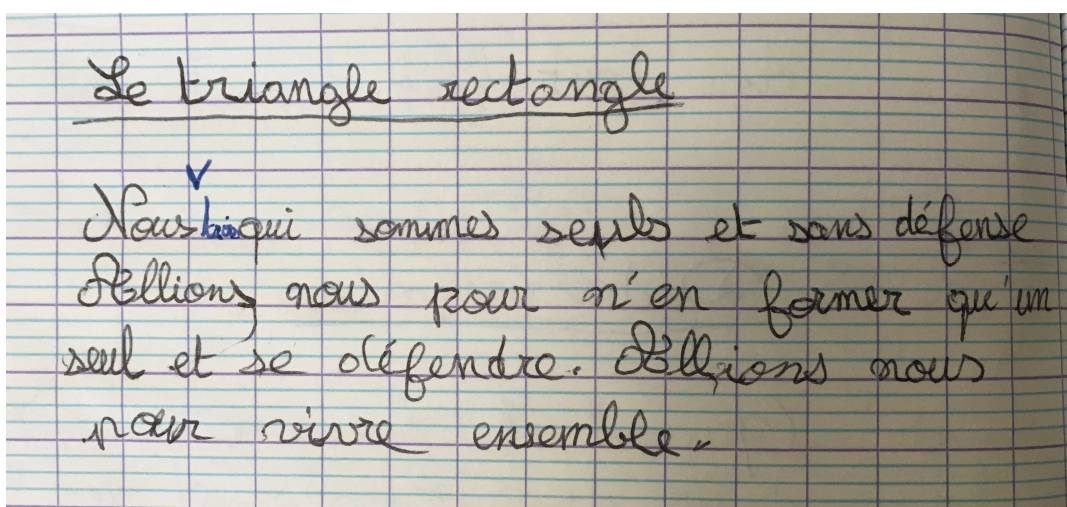 Le triangle rectangle
Nous trois qui sommes seuls et sans défense
Allions nous pour n'en former qu'un
seul et se défendre. Allions nous
pour vivre ensemble.